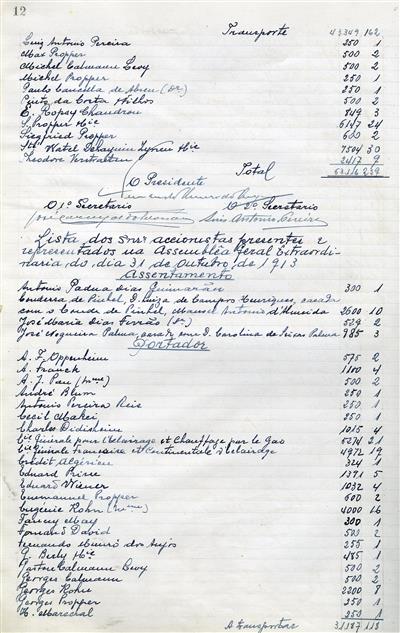 12
Transporte 43349 162
Luiz Antonio Pereira 250 1
Max Propper 500 2
Michel Calmann Levy 500 2
Michel Propper 250 1
Paulo Cancella de Abreu (Dr.) 250 1
Pinto da Costa & filhos 500 2
E. Ropsy Chaudron 849 3
S. Propper & Cie 6147 24
Siegfried Propper 600 2
7504 30
Theodore Verstraeten 2417 9
Total 239
O Presidente
O 1º Secretario O 2º Secretario
Luiz Antonio Pereira
Lista dos snrs accionistas presentes e
representados na Assembléa Geral Extraordi-
naria do dia 31 de Outubro de 1913
Assentamento
Antonio Padua Dias Guimarães 300 1
Condessa de Pinhel, D. Luiza de Campos Henriques, casada
com o Conde de Pinhel, Manuel Antonio d'Almeida 2600 10
José Maria Dias Ferrão (Dr) 529 2
José Nogueira Palma, casado com D. Carolina de Palma 985 3
Portador
A. F. Oppenheim 575 2
A. Franck 1100 4
A. J. Pau (Mme) 500 2
André Blum 250 1
Antonio Pereira Reis 250 1
Cecil Mackei 250 1
Charles Didisheim 1015 4
Cie Générale pour l'Eclairage et Chauffage par le Gaz 5274 21
Cie Générale Française et Continentale d'Eclairage 4972 19
Crédit Algérien 324 1
Eduard Prine 1371 5
Eduard Wiener 1032 4
Emmanuel Propper 600 2
Eugénie Kohn (Mme) 4000 16
Fanny May 300 1
Fernand David 500 2
Fernando Munró dos Anjos 255 1
G. Berly & Cie 485 1
Gaston Calmann Levy 500 2
Georges Calmann 500 2
Georges Kohn 2200 8
Georges Propper 250 1
H. Marechal 250 1
A transportar 31187 118